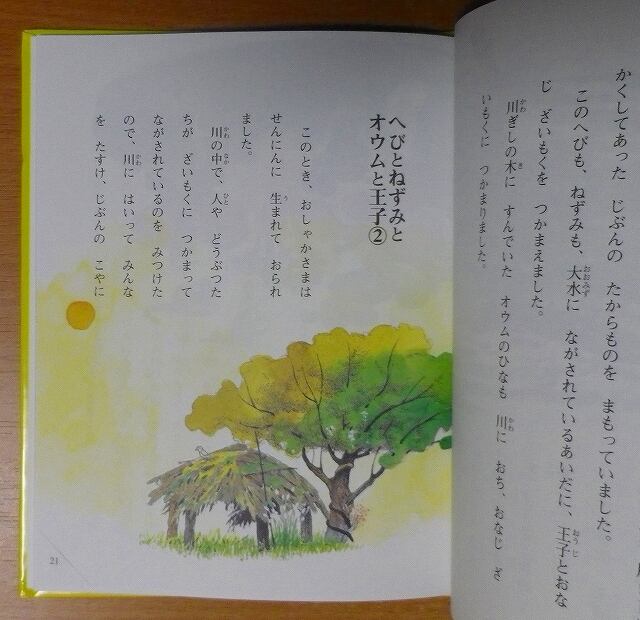 かくしてあった じぶんの たからものを まもっていました。
このへびも、ねずみも、大水に ながされているあいだに、王子とおな
じ ざいもくを つかまえました。
川ぎしの木に すんでいた オウムのひなも 川に おち、おなじ ざ
いもくに つかまりました。
へびとねずみと
オウムと王子②
このとき、おしゃかさまは
せんにんに 生まれて おられ
ました。
川の中で、人や どうぶつた
ちが ざいもくに つかまって
ながされているのを みつけた
ので、川に はいって みんな
を たすけ、じぶんの こやに
21